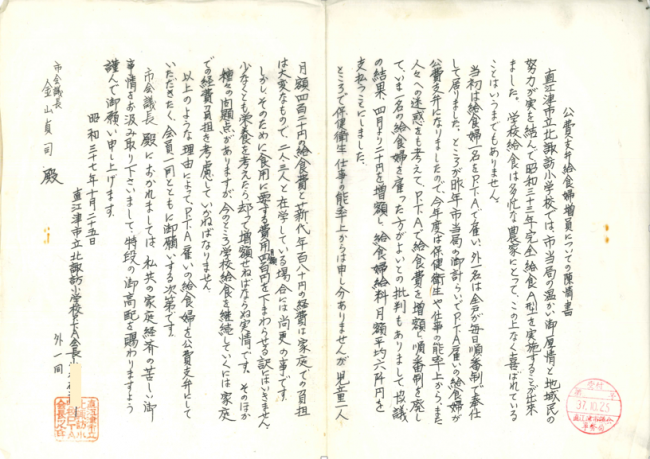 公費支弁給食婦増員についての陳情書
直江津市立北諏訪小学校では、市当局の温かい御厚情と地域民の
努力が実を結んで昭和三十一年完全給食A型を実施することが出来
ました。学校給食は多忙な農家にとって、この上なく喜ばれている
ことはいうまでもありません。
当初は給食婦一名をP.T.A.で雇い、外一名は全戸が毎日順番制で奉仕
して居りました。ところが昨年市当局の御計らいでP.T.A雇いの給食婦が
公費支弁になりましたので、今年度は保健衛生や仕事の能率上から、また
人々への迷惑をも考えて、P.T.A.で給食費を増額し順番制を廃し
ていま一名の給食婦を雇った方がよいとの批判もありまして協議
の結果、四月より二十円を増額し、給食婦給料月額平均六阡円を
支払うことにしました。
ところで保健衛生、仕事の能率上からは申し分ありませんが、児童一人
月額四百二十円の給食費と薪代年百八十円の経費は家庭での負担
は大変なもので、二人三人と在学している場合には尚更の事です。
しかし、そのために食用に要する費用四百円を下まわらせる訳にはいきません。
少なくとも栄養を考えたら却って増額せねばならぬ実情です。そのほか
種々の問題点がありますが、今のところ学校給食を継続していくには家庭
での経費の負担を考慮していかねばなりません
以上のような理由によって、P.T.A雇いの給食婦を公費支弁にして
いただきたく、会員一同とともに御願いする次第です。
市会議長殿におかれましては、私共の家庭経済の苦しい御
事情をお汲み取り下さいまして、特段の御高配を賜わりますよう
謹んで御願い申し上げます。
昭和三十七年十月二十五日
直江津市立北諏訪小学校P.T.A会長
外一同
市会議長
金山貞司殿
37.10.25